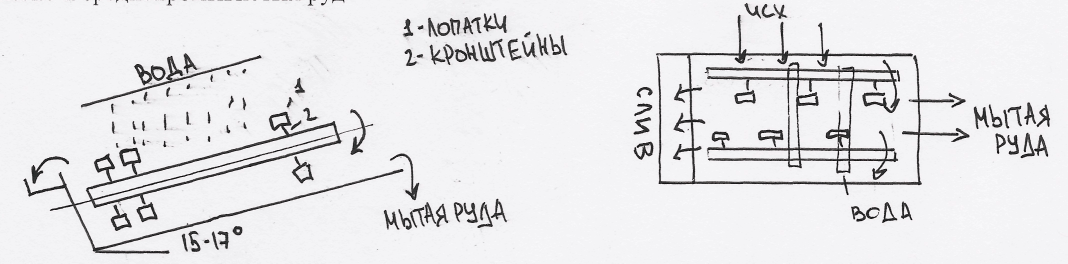 1-ЛОПАТКИ
2-КРОНШТЕЙНЫ
ВОДА
1
2
15-17°
МЫТАЯ РУДА
ИСХ
СЛИВ
МЫТАЯ
РУДА
ВОДА